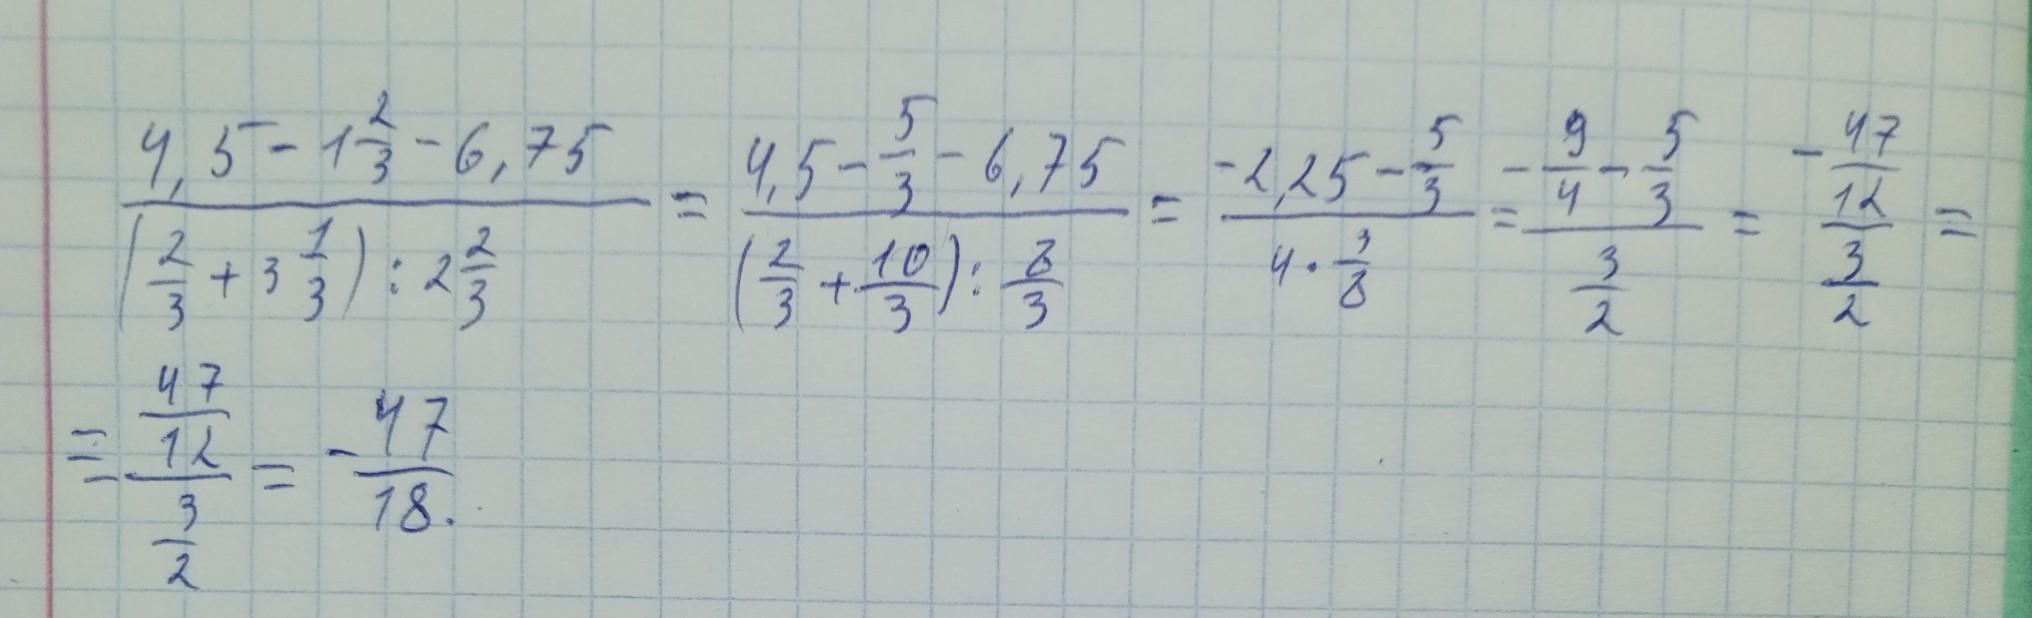 \frac{4,5 - 1\frac{2}{3} - 6,75}{\left(\frac{2}{3} + 3\frac{1}{3}\right) : 2\frac{2}{3}} = \frac{4,5 - \frac{5}{3} - 6,75}{\left(\frac{2}{3} + \frac{10}{3}\right) : \frac{8}{3}} = \frac{-2,25 - \frac{5}{3}}{4 \cdot \frac{3}{8}} = \frac{-\frac{9}{4} - \frac{5}{3}}{\frac{3}{2}} = \frac{-\frac{47}{12}}{\frac{3}{2}} =
= \frac{\frac{47}{12}}{\frac{3}{2}} = -\frac{47}{18}.